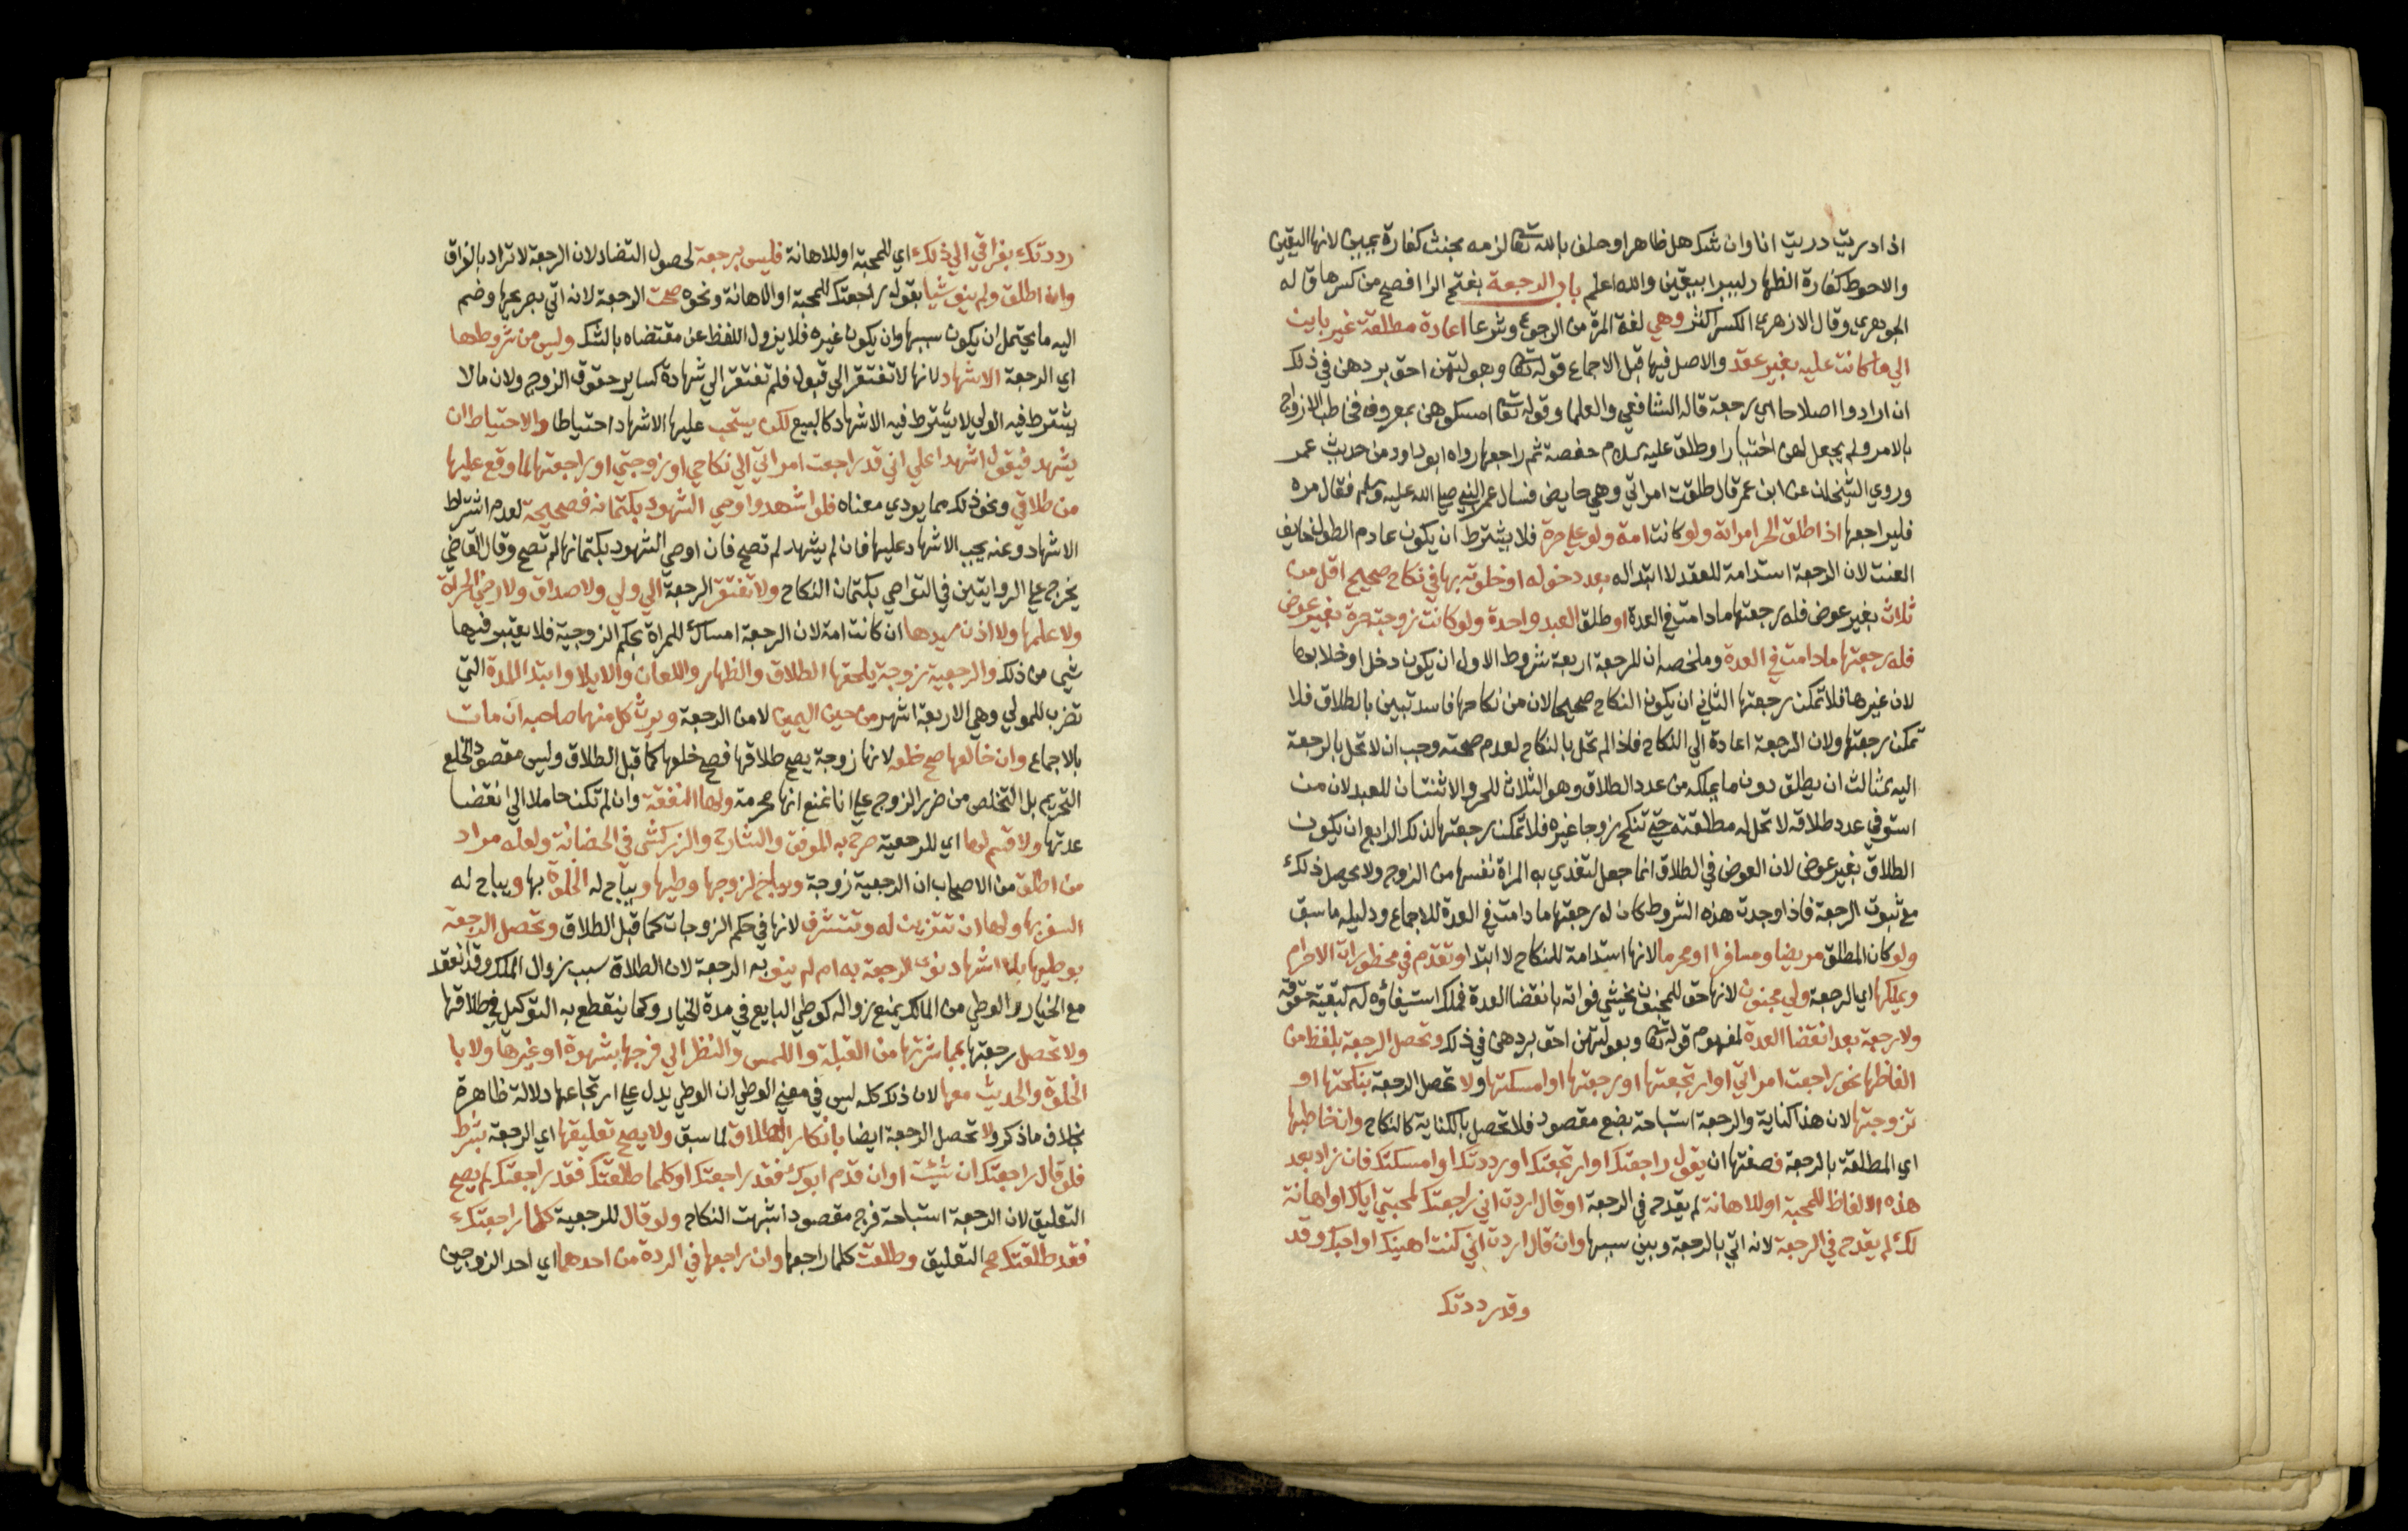 اذا دريت دريت انا وان شك هل ظاهر او حلف بالله تعا لزمه بحنث كفارة يمين لانها اليقين
والاحوط كفارة الظهار ليبرا بيقين والله اعلم باب الرجعة بفتح الرا افصح من كسرها قاله
الجوهري وقال الازهري الكسر اكثر وهي لغة المرة من الرجوع وشرعا اعادة مطلقة غير باين
الي ما كانت عليه بغير عقد والاصل فيها قبل الاجماع قوله تعا وبعولتهن احق بردهن في ذلك
ان ارادوا اصلاحا اي رجعة قاله الشافعي والعلما وقوله تعا امسكوهن بمعروف فخاطب الازواج
بالامر ولم يجعل لهن اختيارا وطلق عليه السلام حفصة ثم راجعها رواه ابو داود من حديث عمر
وروي الشيخان عن ابن عمر قال طلقت امراتي وهي حايض فسال عمر النبي صلي الله عليه وسلم فقال مره
فليراجعها اذا طلق الحر امراته ولو كانت امة ولو علي حرة فلا يشترط ان يكون عادم الطول خايف
العنت لان الرجعة استدامة للعقد لا ابتدا له بعد دخوله او خلوته بها في نكاح صحيح اقل من
ثلاث بغير عوض فله رجعتها ما دامت في العدة او طلق العبد واحدة ولو كانت زوجته حرة بغير عوض
فله رجعتها ما دامت في العدة وملخصه ان للرجعة اربعة شروط الاول ان يكون دخل او خلا بها
لان غيرها فلا تمكن رجعتها الثاني ان يكون النكاح صحيحا لان من نكاحها فاسد تبين بالطلاق فلا
تمكن رجعتها ولان الرجعة اعادة الي النكاح فاذا لم تحل بالنكاح لعدم صحته وجب ان لا تحل بالرجعة
اليه الثالث ان يطلق دون ما يملكه من عدد الطلاق وهو الثلاث للحر والاثنتان للعبد لان من
استوفي عدد طلاقه لا تحل له مطلقته حتي تنكح زوجا غيره فلا تمكن رجعتها لذلك الرابع ان يكون
الطلاق بغير عوض لان العوض في الطلاق انما جعل لتفدي به المراة نفسها من الزوج ولا يحصل ذلك
مع ثبوت الرجعة فاذا وجدت هذه الشروط كان له رجعتها ما دامت في العدة للاجماع ودليله ما سبق
ولو كان المطلق مريضا ومسافرا او محرما لانها استدامة للنكاح لا ابتدا وتقدم في محظورات الاحرام
ويملكها اي الرجعة ولي مجنون لانها حق للمجنون يخشي فواته بانقضا العدة فملك استيفاؤه له كبقية حقوقه
ولا رجعة بعد انقضا العدة لمفهوم قوله تعا وبعولتهن احق بردهن في ذلك وتحصل الرجعة بلفظ من
الفاظها نحو راجعت امراتي او ارتجعتها او رجعتها او امسكتها ولا تحصل الرجعة بنكحتها او
تزوجتها لان هذا كناية والرجعة استباحة بضع مقصود فلا تحصل بالكناية كالنكاح وان خاطبها
اي المطلقة بالرجعة فصفتها ان يقول راجعتك او ارتجعتك او رددتك او امسكتك فان زاد بعد
هذه الالفاظ للمحبة او للاهانة لم يقدح في الرجعة او قال اردت اني راجعتك لمحبتي اياك او اهانة
لك لم يقدح في الرجعة لانه اتي بالرجعة وبين سببها وان قال اردت اني كنت اهينك او احبك وقد
وقد رددتك
رددتك بفراقي الي ذلك اي للمحبة او للاهانة فليس برجعة لحصول التضاد لان الرجعة لا تراد بالفراق
وان اطلق ولم ينو شيا بقوله راجعتك للمحبة او الاهانة ونحوه صحت الرجعة لانه اتي بصريحها وضم
اليه ما يحتمل ان يكون سببها وان يكون غيره فلا يزول اللفظ عن مقتضاه بالشك وليس من شروطها
اي الرجعة الاشهاد لانها لا تفتقر الي قبول فلم تفتقر الي شهادة كساير حقوق الزوج ولان ما لا
يشترط فيه الولي لا يشترط فيه الاشهاد كالبيع لكن يستحب عليها الاشهاد احتياطا والاحتياط ان
يشهد فيقول اشهدا علي اني قد راجعت امراتي الي نكاحي او زوجتي او راجعتها لما وقع عليها
من طلاقي ونحو ذلك مما يودي معناه فلو اشهد واوصي الشهود بكتمانه فصحيحة لعدم اشتراط
الاشهاد وعنه يجب الاشهاد عليها فان لم يشهد لم تصح فان اوصي الشهود بكتمانها لم تصح وقال القاضي
يخرج علي الروايتين في التواصي بكتمان النكاح ولا تفتقر الرجعة الي ولي ولا صداق ولا رضي المراة
ولا علمها ولا اذن سيدها ان كانت امة لان الرجعة امساك للمراة بحكم الزوجية فلا يعتبر فيها
شي من ذلك والرجعية زوجة يلحقها الطلاق والظهار واللعان والايلا وابتدا المدة التي
تضرب للمولي وهي الاربعة اشهر من حين اليمين لا من الرجعة ويرث كل منهما صاحبه ان مات
بالاجماع وان خالعها صح خلعه لانها زوجة يصح طلاقها فصح خلعها كما قبل الطلاق وليس مقصود الخلع
التحريم بل التخلص من ضرر الزوج علي انا نمنع انها محرمة ولها النفقة وان لم تكن حاملا الي انقضا
عدتها ولا قسم لها اي للرجعية صرح به الموفق والشارح والزركشي في الحضانة ولعله مراد
من اطلق من الاصحاب ان الرجعية زوجة ويباح لزوجها وطيها ويباح له الخلوة بها ويباح له
السفر بها ولها ان تتزين له وتتشرف لانها في حكم الزوجات كما قبل الطلاق وتحصل الرجعة
بوطيها بلا اشهاد نوي الرجعة به ام لم ينو به الرجعة لان الطلاق سبب زوال الملك وقد انعقد
مع الخيار والوطي من المالك يمنع زواله كوطي البايع في مدة الخيار وكما ينقطع به التوكيل في طلاقها
ولا تحصل رجعتها بمباشرتها من القبلة واللمس والنظر الي فرجها بشهوة او غيرها ولا با
الخلوة والحديث معها لان ذلك كله ليس في معني الوطي ان الوطي يدل علي ارتجاعها دلالة ظاهرة
بخلاف ما ذكر ولا تحصل الرجعة ايضا بانكار الطلاق لما سبق ولا يصح تعليقها اي الرجعة بشرط
فلو قال راجعتك ان شئت او ان قدم ابوك فقد راجعتك او كلما طلقتك فقد راجعتك لم يصح
التعليق لان الرجعة استباحة فرج مقصود اشبهت النكاح ولو قال للرجعية كلما راجعتك
فقد طلقتك صح التعليق وطلقت كلما راجعها وان راجعها في الردة من احدهما اي احد الزوجين